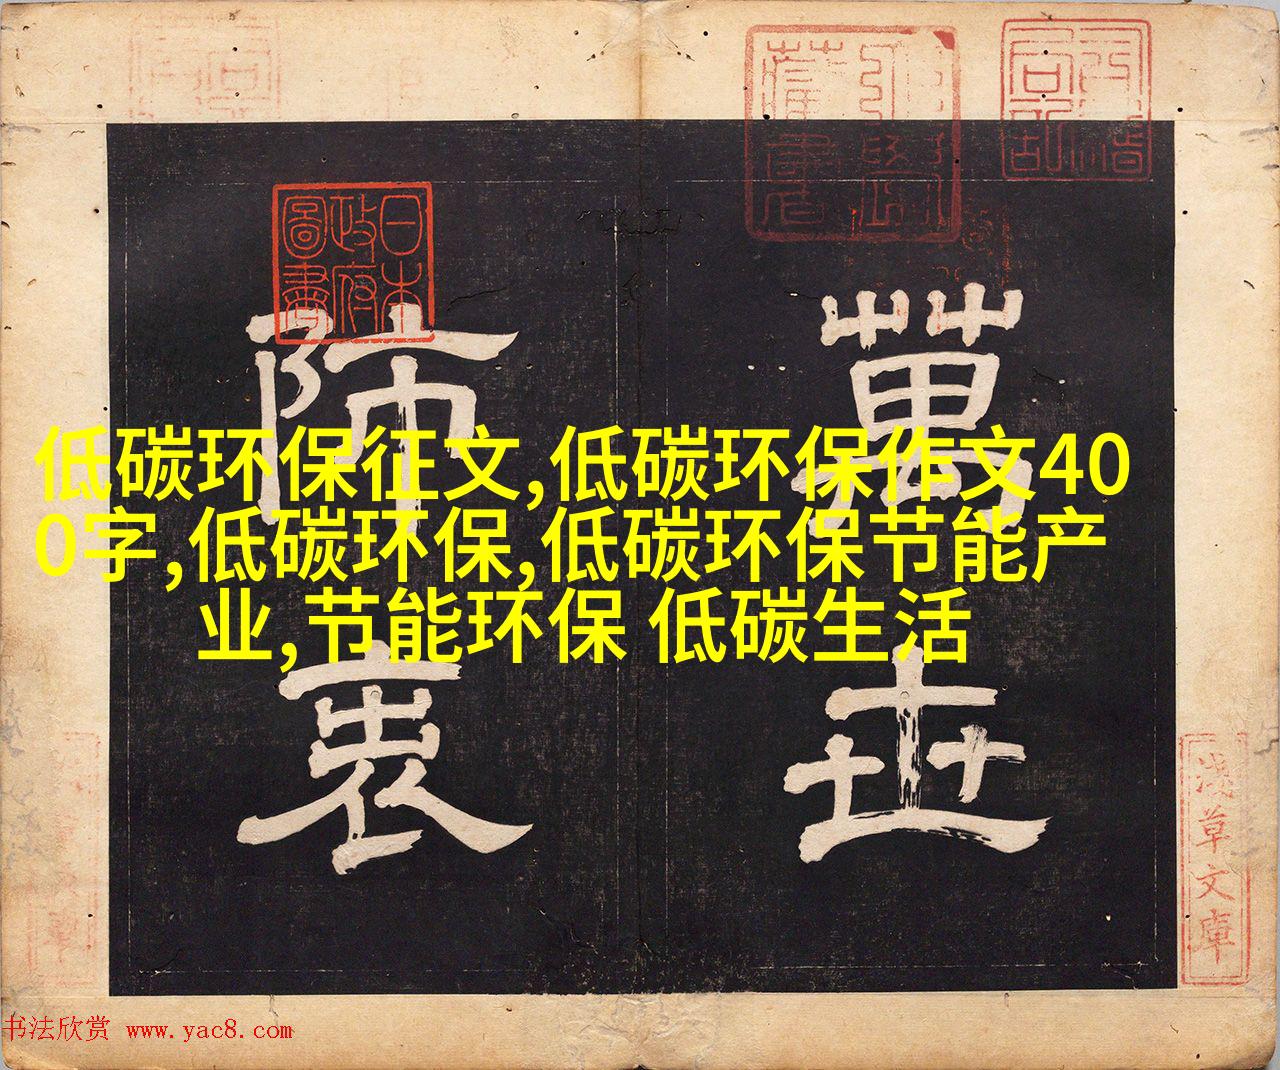 萬世
師表
日本
政府
圖書
淺草文庫
低碳环保征文,低碳环保作文40
0字,低碳环保,低碳环保节能产
业,节能环保 低碳生活
书法欣赏 www.yac8.com